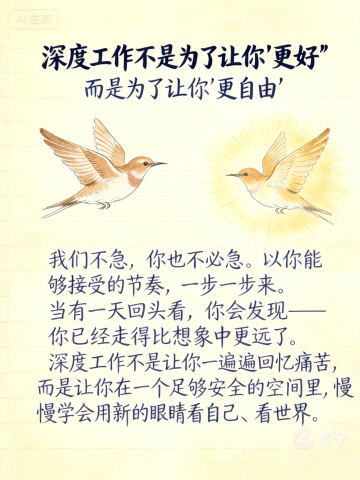 AI 生成
深度工作不是为了让你'更好"
而是为了让你'更自由'
我们不急，你也不必急。以你能
够接受的节奏，一步一步来。
当有一天回头看，你会发现——
你已经走得比想象中更远了。
深度工作不是让你一遍遍回忆痛苦，
而是让你在一个足够安全的空间里，慢
慢学会用新的眼睛看自己、看世界。